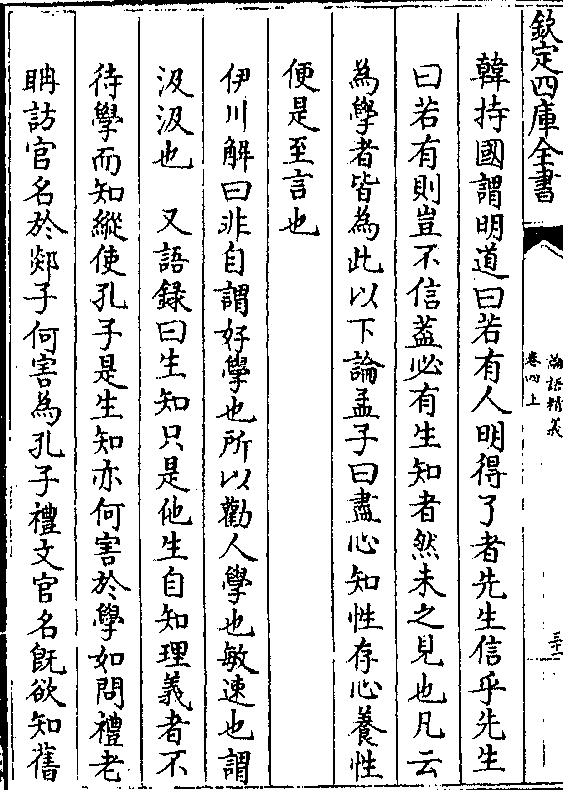 欽定四庫全書
論語精義
卷四上
三十一
韓持國謂明道曰若有人明得了者先生信乎先生
曰若有則豈不信蓋必有生知者然未之見也凡云
為學者皆為此以下論孟子曰盡心知性存心養性
便是至言也
伊川解曰非自謂好學也所以勸人學也敏速也謂
汲汲也　又語録曰生知只是他生自知理義者不
待學而知縱使孔子是生知亦何害於學如問禮老
聃訪官名於郯子何害為孔子禮文官名既欲知舊